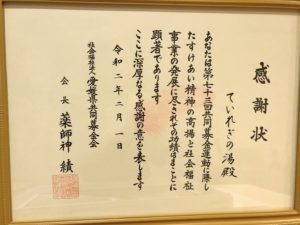 感謝状
ていれぎの湯殿
あなたは第七十三回共同募金運動に際し
たすけあい精神の高揚と社会福祉
事業の発展に尽されその功績はまことに
顕著であります
ここに深厚なる感謝の意を表します
令和二年二月一日
社会福祉法人 愛媛県共同募金会
会長 薬師神 績